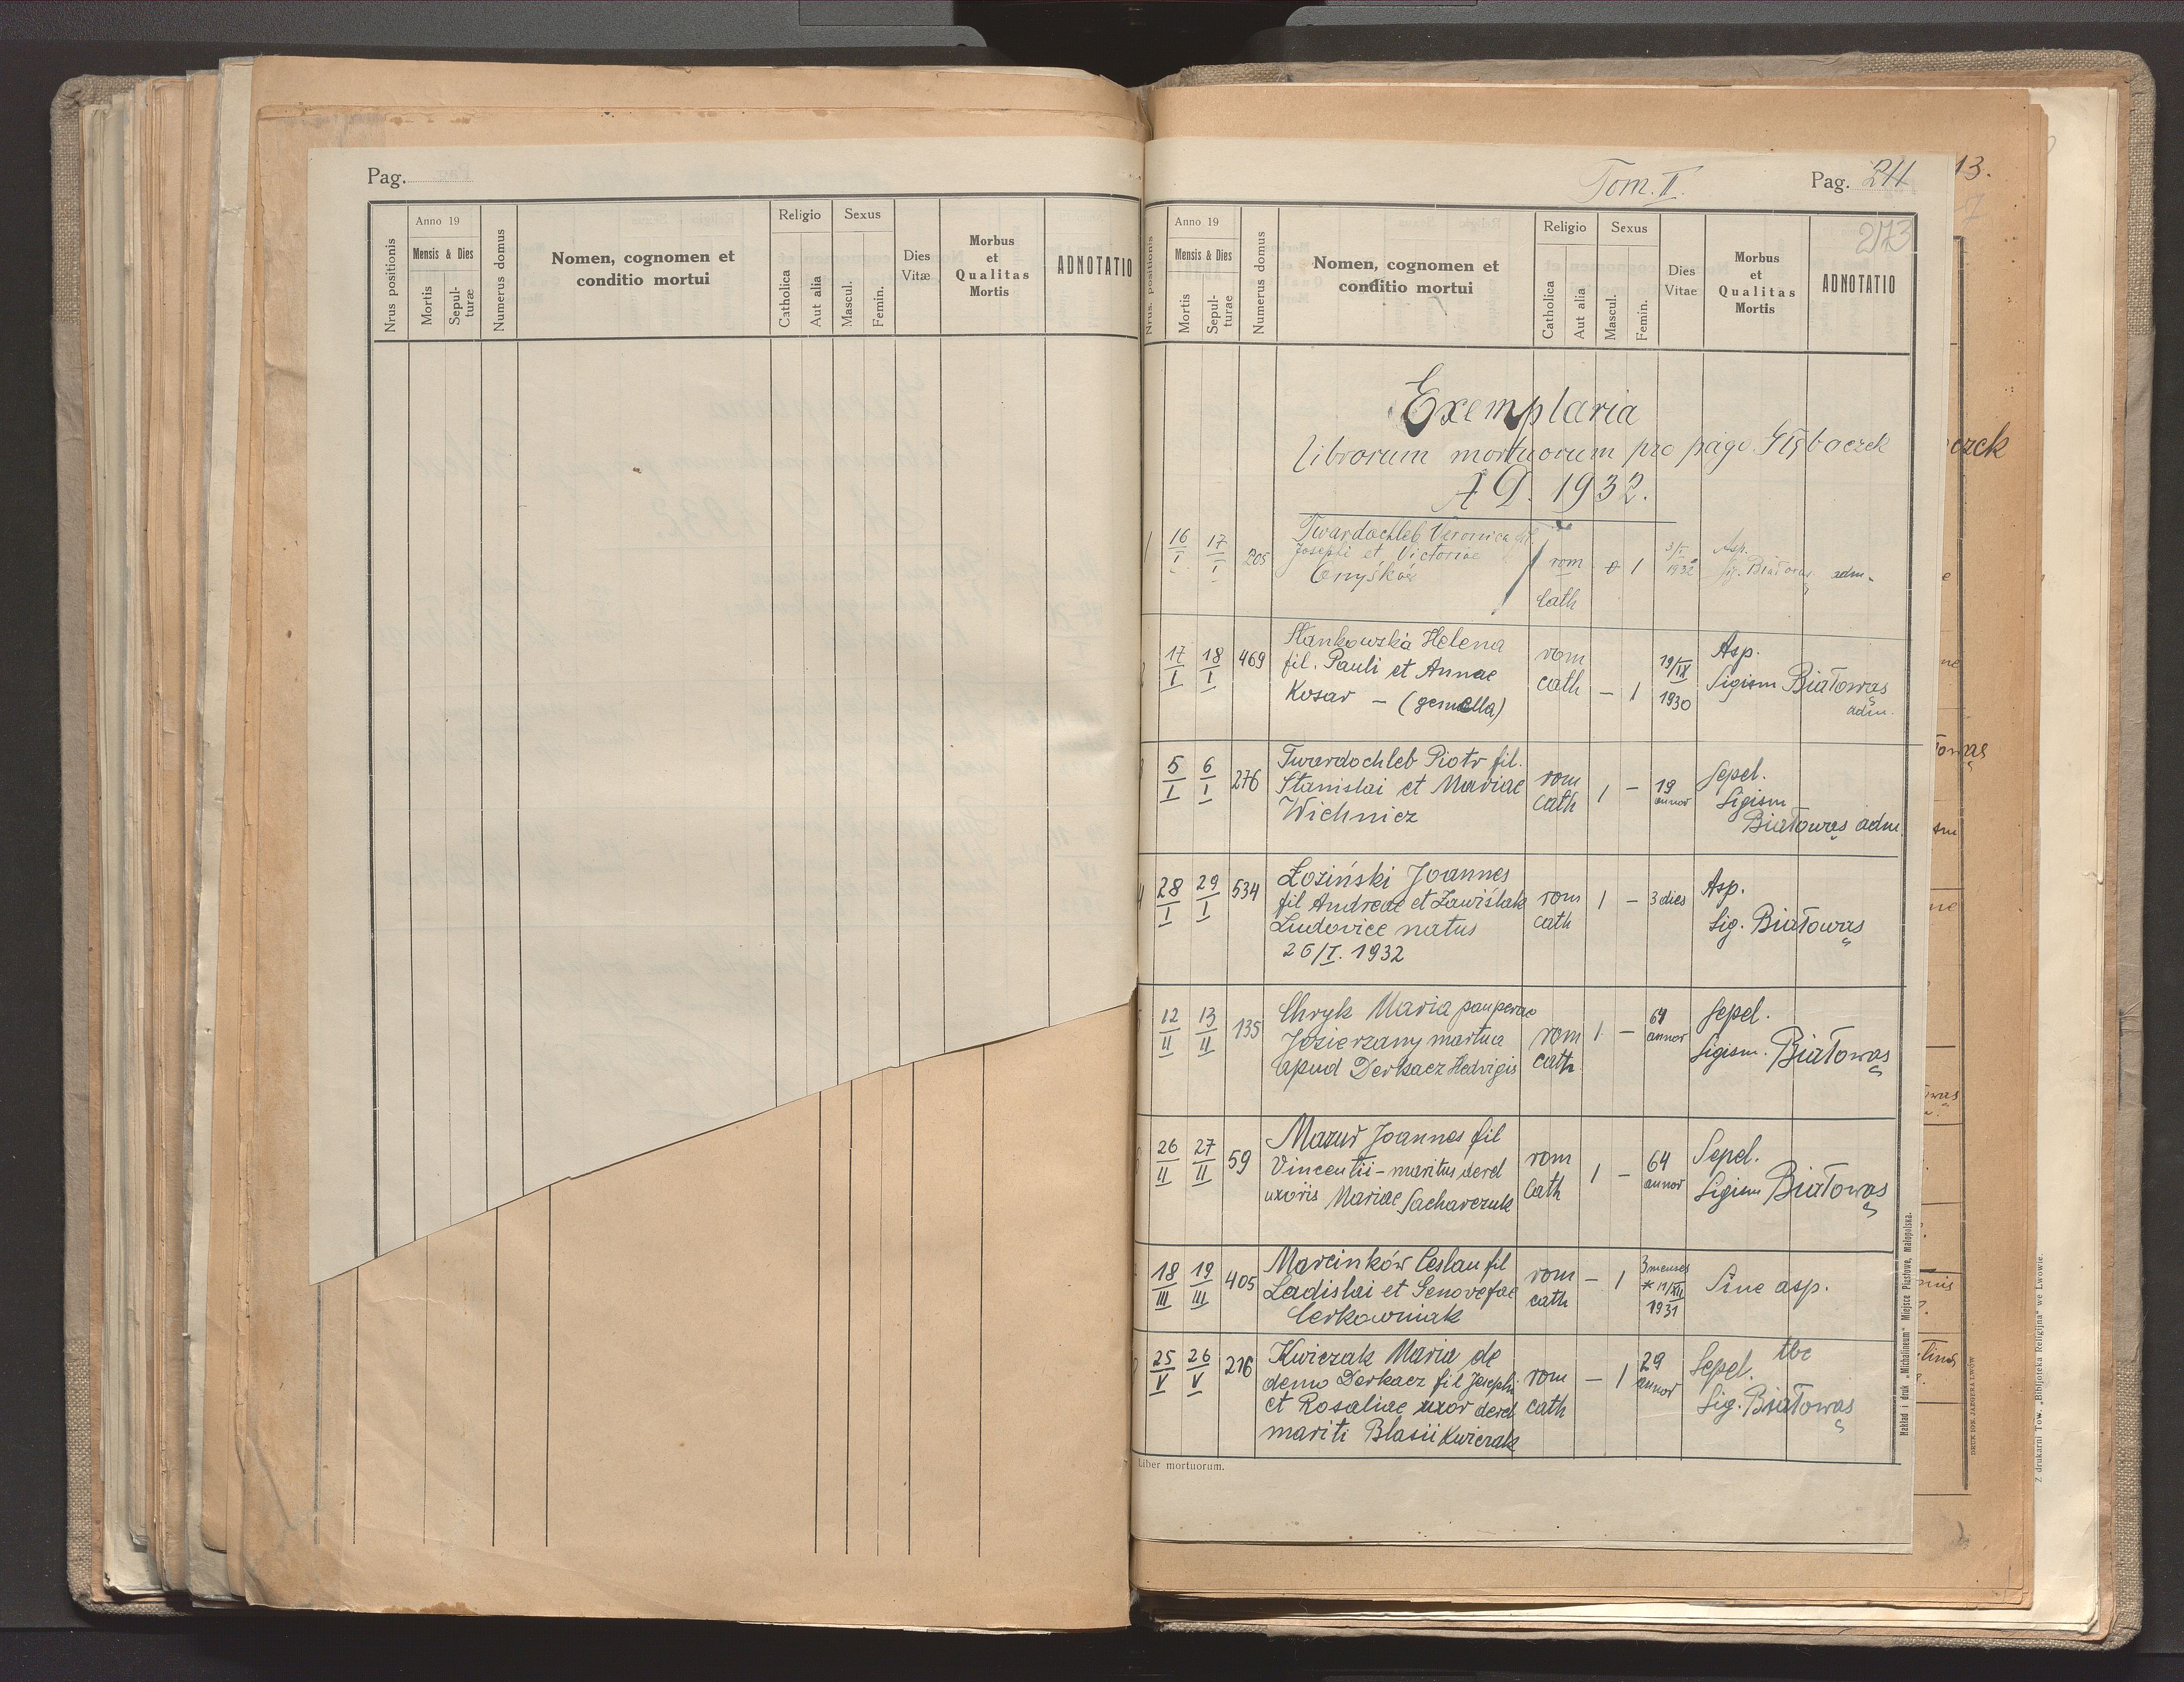 Pag.
Nrus positionis
Anno 19
Mensis & Dies
Mortis
Sepul-
turæ
Numerus domus
Nomen, cognomen et
conditio mortui
Religio
Catholica
Aut alia
Sexus
Mascul.
Femin.
Dies
Vitæ
Morbus
et
Qualitas
Mortis
ADNOTATIO
Tom. II.
Pag. 211
13.
213
Nrus. positionis
Anno 19
Mensis & Dies
Mortis
Sepul-
turae
Numerus domus
Nomen, cognomen et
conditio mortui
Religio
Catholica
Aut alia
Sexus
Mascul.
Femin.
Dies
Vitae
Morbus
et
Qualitas
Mortis
ADNOTATIO
Exemplaria
librorum mortuorum pro pago Głęboczek
A D. 1932.
1 16/I 17/I 205 Twardochleb Veronica fil.
Josephi et Victoriae
Onyśków
rom
cath
1
1932
Asp.
Sig. Białowąs adm.
17/I 18/I 469 Stankowska Helena
fil. Pauli et Annae
Kosar – (gemella)
rom
cath – 1
19/IX
1930
Asp.
Sigism Białowąs
adm.
5/I 6/I 276 Twardochleb Piotr fil.
Stanislai et Mariae
Wichnicz
rom
cath 1 –
19
annor
Sepel.
Sigism
Białowąs adm.
4 28/I 29/I 534 Łoziński Joannes
fil Andreae et Zawiślak
Ludovice natus
26/I. 1932
rom
cath 1 – 3 dies
Asp.
Sig. Białowąs
12/II 13/II 135 Chryk Maria pauperae
Jezierzany martua
apud Derkacz Hedvigis
rom
cath 1 –
64
annor
Sepel.
Sigism. Białowąs
26/II 27/II 59 Mazur Joannes fil
Vincentii – maritus derel
uxoris Mariae Sacharczuk
rom
cath 1 –
64
annor
Sepel.
Sigism Białowąs
18/III 19/III 405 Marcinków Ceslau fil
Ladislai et Genovefae
Cerkowniak
rom
cath – 1
3 menses
* 11/XII
1931
Sine asp.
25/V 26/V 216 Kwiczak Maria de
domo Derkacz fil Josephi
et Rosaliae uxor derel
mariti Blasii Kwiczak
rom
cath – 1
29
annor
Sepel. tbc
Sig. Białowąs
Liber mortuorum.
Nakład i druk „Michalineum" Miejsce Piastowe, małopolska.
DRUK JÓZ. JAEGERA LWÓW
Z drukarni Tow. „Bibljoteka Religijna" we Lwowie.